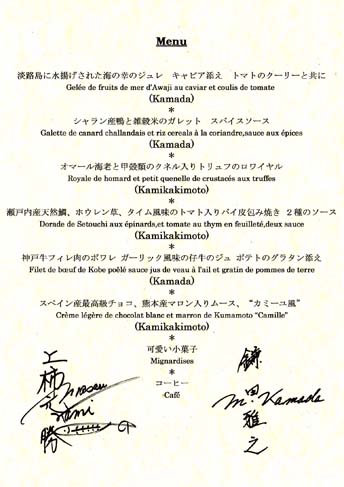 Menu
淡路島に水揚げされた海の幸のジュレ　キャビア添え　トマトのクーリーと共に
Gelée de fruits de mer d'Awaji au caviar et coulis de tomate
(Kamada)
*
シャラン産鴨と雑穀米のガレット　スパイスソース
Galette de canard challandais et riz cereals à la coriandre,sauce aux épices
(Kamada)
*
オマール海老と甲殻類のクネル入りトリュフのロワイヤル
Royale de homard et petit quenelle de crustacés aux truffes
(Kamikakimoto)
*
瀬戸内産天然鯛、ホウレン草、タイム風味のトマト入りパイ皮包み焼き　２種のソース
Dorade de Setouchi aux épinards,et tomate au thym en feuilleté,deux sauce
(Kamikakimoto)
*
神戸牛フィレ肉のポワレ ガーリック風味の仔牛のジュ ポテトのグラタン添え
Filet de bœuf de Kobe poêlé sauce jus de veau à l'ail et gratin de pommes de terre
(Kamada)
*
スペイン産最高級チョコ、熊本産マロン入りムース、“カミーユ風”
Crème légère de chocolat blanc et marron de Kumamoto “Camille”
(Kamikakimoto)
*
可愛い小菓子
Mignardises
*
コーヒー
Café
上柿元勝
鎌田雅之
M. Kamada